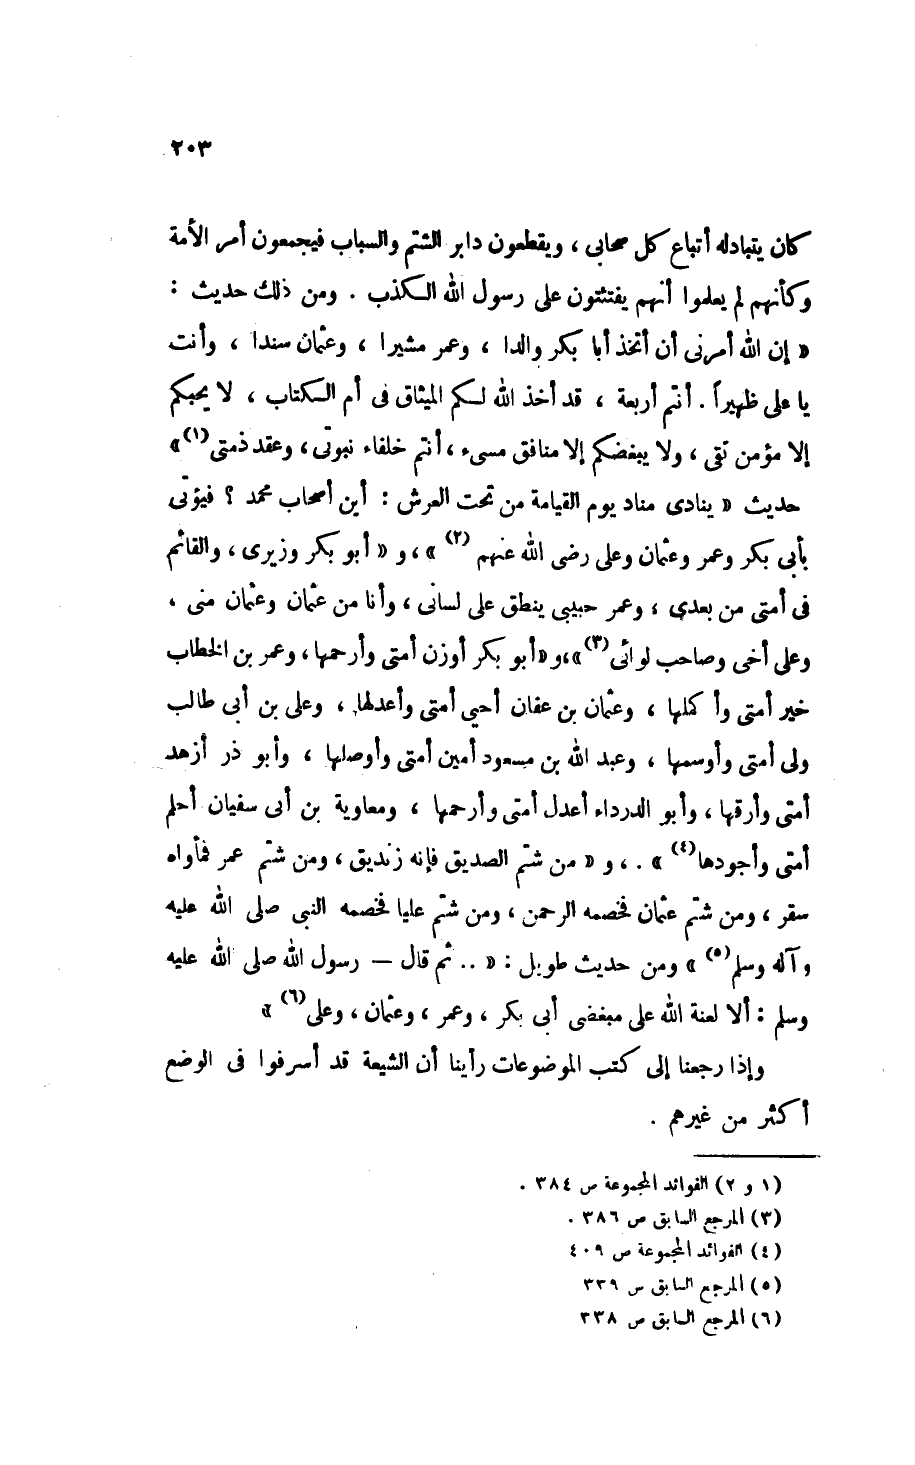 ٢٠٣
كان يتبادله أتباع كل صحابى ، ويقطعون دابر الشتم والسباب فيجمعون أمر الأمة
وكأنهم لم يعلموا أنهم يفتئتون على رسول الله الكذب . ومن ذلك حديث :
« إن الله أمرنى أن أتخذ أبا بكر والدا ، وعمر مشيرا ، وعثمان سندا ، وأنت
يا على ظهيراً . أنتم أربعة ، قد أخذ الله لكم الميثاق فى أم الكتاب ، لا يحبكم
إلا مؤمن تقى ، ولا يبغضكم إلا منافق مسىء ، أنتم خلفاء نبوتى ، وعقد ذمتى (١) »
حديث « ينادى مناد يوم القيامة من تحت العرش : أين أصحاب محمد ؟ فيؤتى
بأبى بكر وعمر وعثمان وعلى رضى الله عنهم (٢) » ، و « أبو بكر وزيرى ، والقائم
فى أمتى من بعدى ، وعمر حبيبى ينطق على لسانى ، وأنا من عثمان وعثمان منى ،
وعلى أخى وصاحب لوائى (٣) »، و « أبو بكر أوزن أمتى وأرحمها ، وعمر بن الخطاب
خير أمتى وأكملها ، وعثمان بن عفان أحيى أمتى وأعدلها ، وعلى بن أبى طالب
ولى أمتى وأوسمها ، وعبد الله بن مسعود أمين أمتى وأوصلها ، وأبو ذر أزهد
أمتى وأرقها ، وأبو الدرداء أعدل أمتى وأرحمها ، ومعاوية بن أبى سفيان أحلم
أمتى وأجودها (٤) » . ، و « من شتم الصديق فإنه زنديق ، ومن شتم عمر فمأواه
سقر ، ومن شتم عثمان فخصمه الرحمن ، ومن شتم عليا فخصمه النبى صلى الله عليه
وآله وسلم (٥) » ومن حديث طويل : « .. ثم قال — رسول الله صلى الله عليه
وسلم : ألا لعنة الله على مبغضى أبى بكر ، وعمر ، وعثمان ، وعلى (٦) »
وإذا رجعنا إلى كتب الموضوعات رأينا أن الشيعة قد أسرفوا فى الوضع
أكثر من غيرهم .
(١ و ٢) الفوائد المجموعة ص ٣٨٤ .
(٣) المرجع السابق ص ٣٨٦ .
(٤) الفوائد المجموعة ص ٤٠٩
(٥) المرجع السابق ص ٣٣٩
(٦) المرجع السابق ص ٣٣٨